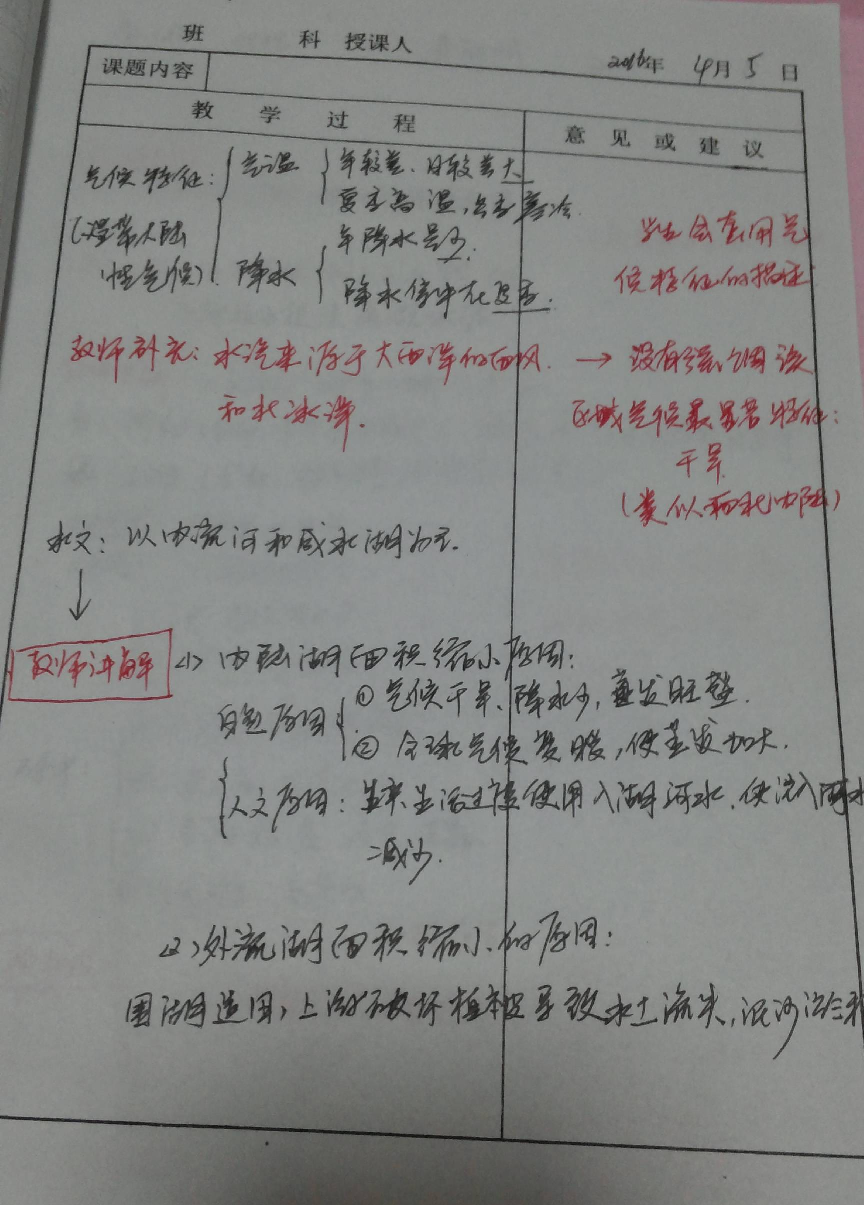 班 科 授课人
2016年 4月 5日
课题内容
教 学 过 程
意 见 或 建 议
气候特征：
气温
年较差、日较差大
夏季高温，冬季寒冷
(温带大陆
性气候)
降水
年降水量少.
降水集中在夏季.
学生会套用气
候特征的描述
教师补充：水汽来源于大西洋的西风
和北冰洋.
→ 没有强调该
区域气候最显著特征：
干旱
(类似西北内陆)
水文：以内流河和咸水湖为主.
↓
教师讲解
<1> 内陆湖面积缩小原因：
自然原因
① 气候干旱、降水少，蒸发旺盛.
② 全球气候变暖，使蒸发加大.
人文原因：生产生活过度使用入湖河水，使流入湖水
减少.
<2> 外流湖面积缩小的原因：
围湖造田，上游破坏植被导致水土流失，泥沙沉